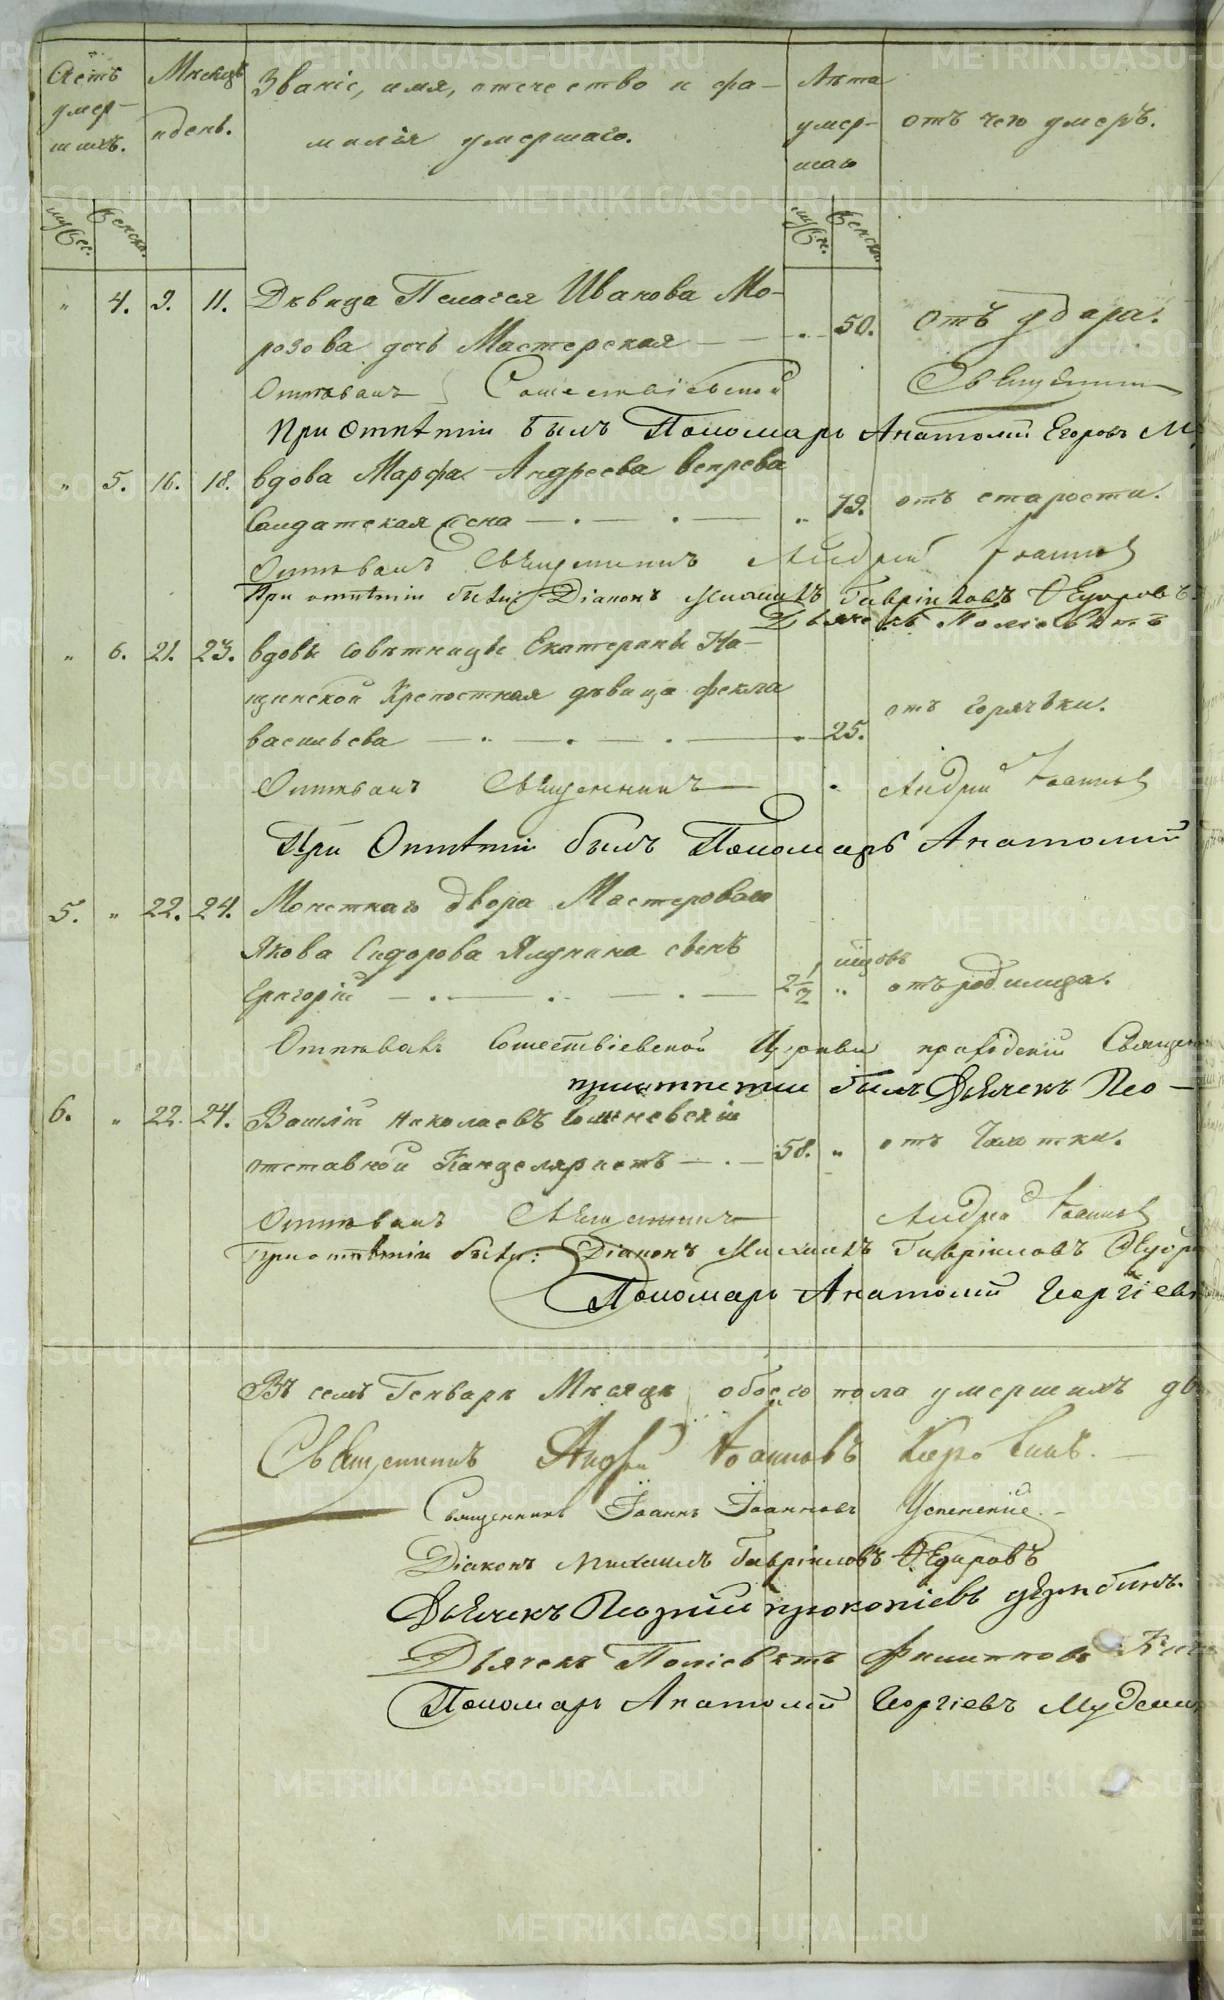 Счетъ умер- шихъ.
Мѣсяцъ и день.
Званіе, имя, отечество и фа-
милія умершаго.
Лѣта умер- шаго
отъ чего умеръ.
муж. женск.
муж. женск.
" 4. 9. 11. Дѣвица Пелагея Иванова Мо-
розова дочь Мастерская " 50. отъ удара.
Отпѣвалъ Сошествіевской Священник
При Отпѣтіи былъ Пономарь Анатолій Егоровъ М
" 5. 16. 18. вдова Марфа Андреева вепрева
Солдатская жена " 79. отъ старости.
Отпѣвалъ Священникъ Андрей Іоанновъ
При отпѣтіи были: Діаконъ Михаилъ Гавріиловъ Ѳедоровъ
Дьячекъ Поліевктъ
" 6. 21. 23. вдовы Совѣтницы Екатерины На-
щинской Крепостная дѣвица Фекла
васильева " 25. отъ горячьки.
Отпѣвалъ Священникъ Андрей Іоанновъ
При Отпѣтіи былъ Пономарь Анатолій
5. " 22. 24. Монетнаго двора Мастероваго
Якова Сидорова сынъ
Григорій 2 1/2 " отъ родимца.
Отпѣвалъ Сошествіевской Церкви Священ
при отпетии былъ Дьячекъ
6. " 22. 24. Василій Николаевъ
отставной Канцеляристъ 58. " отъ Чахотки.
Отпѣвалъ Священникъ Андрей Іоанновъ
При отпѣтіи были: Діаконъ Михаилъ Гавріиловъ Ѳедоро
Пономарь Анатолий Георгіевъ
Въ семъ Генварѣ Мѣсяцѣ обоего пола умершихъ дв
Священникъ Андрей Іоанновъ
Священникъ Іоаннъ Іоанновъ Успенскій.
Діаконъ Михаилъ Гавріиловъ Ѳедоровъ
Дьячекъ прокопіевъ
Дьячекъ Поліевктъ Филиповъ
Пономарь Анатолий Георгіевъ
METRIKI.GASO-URAL.RU